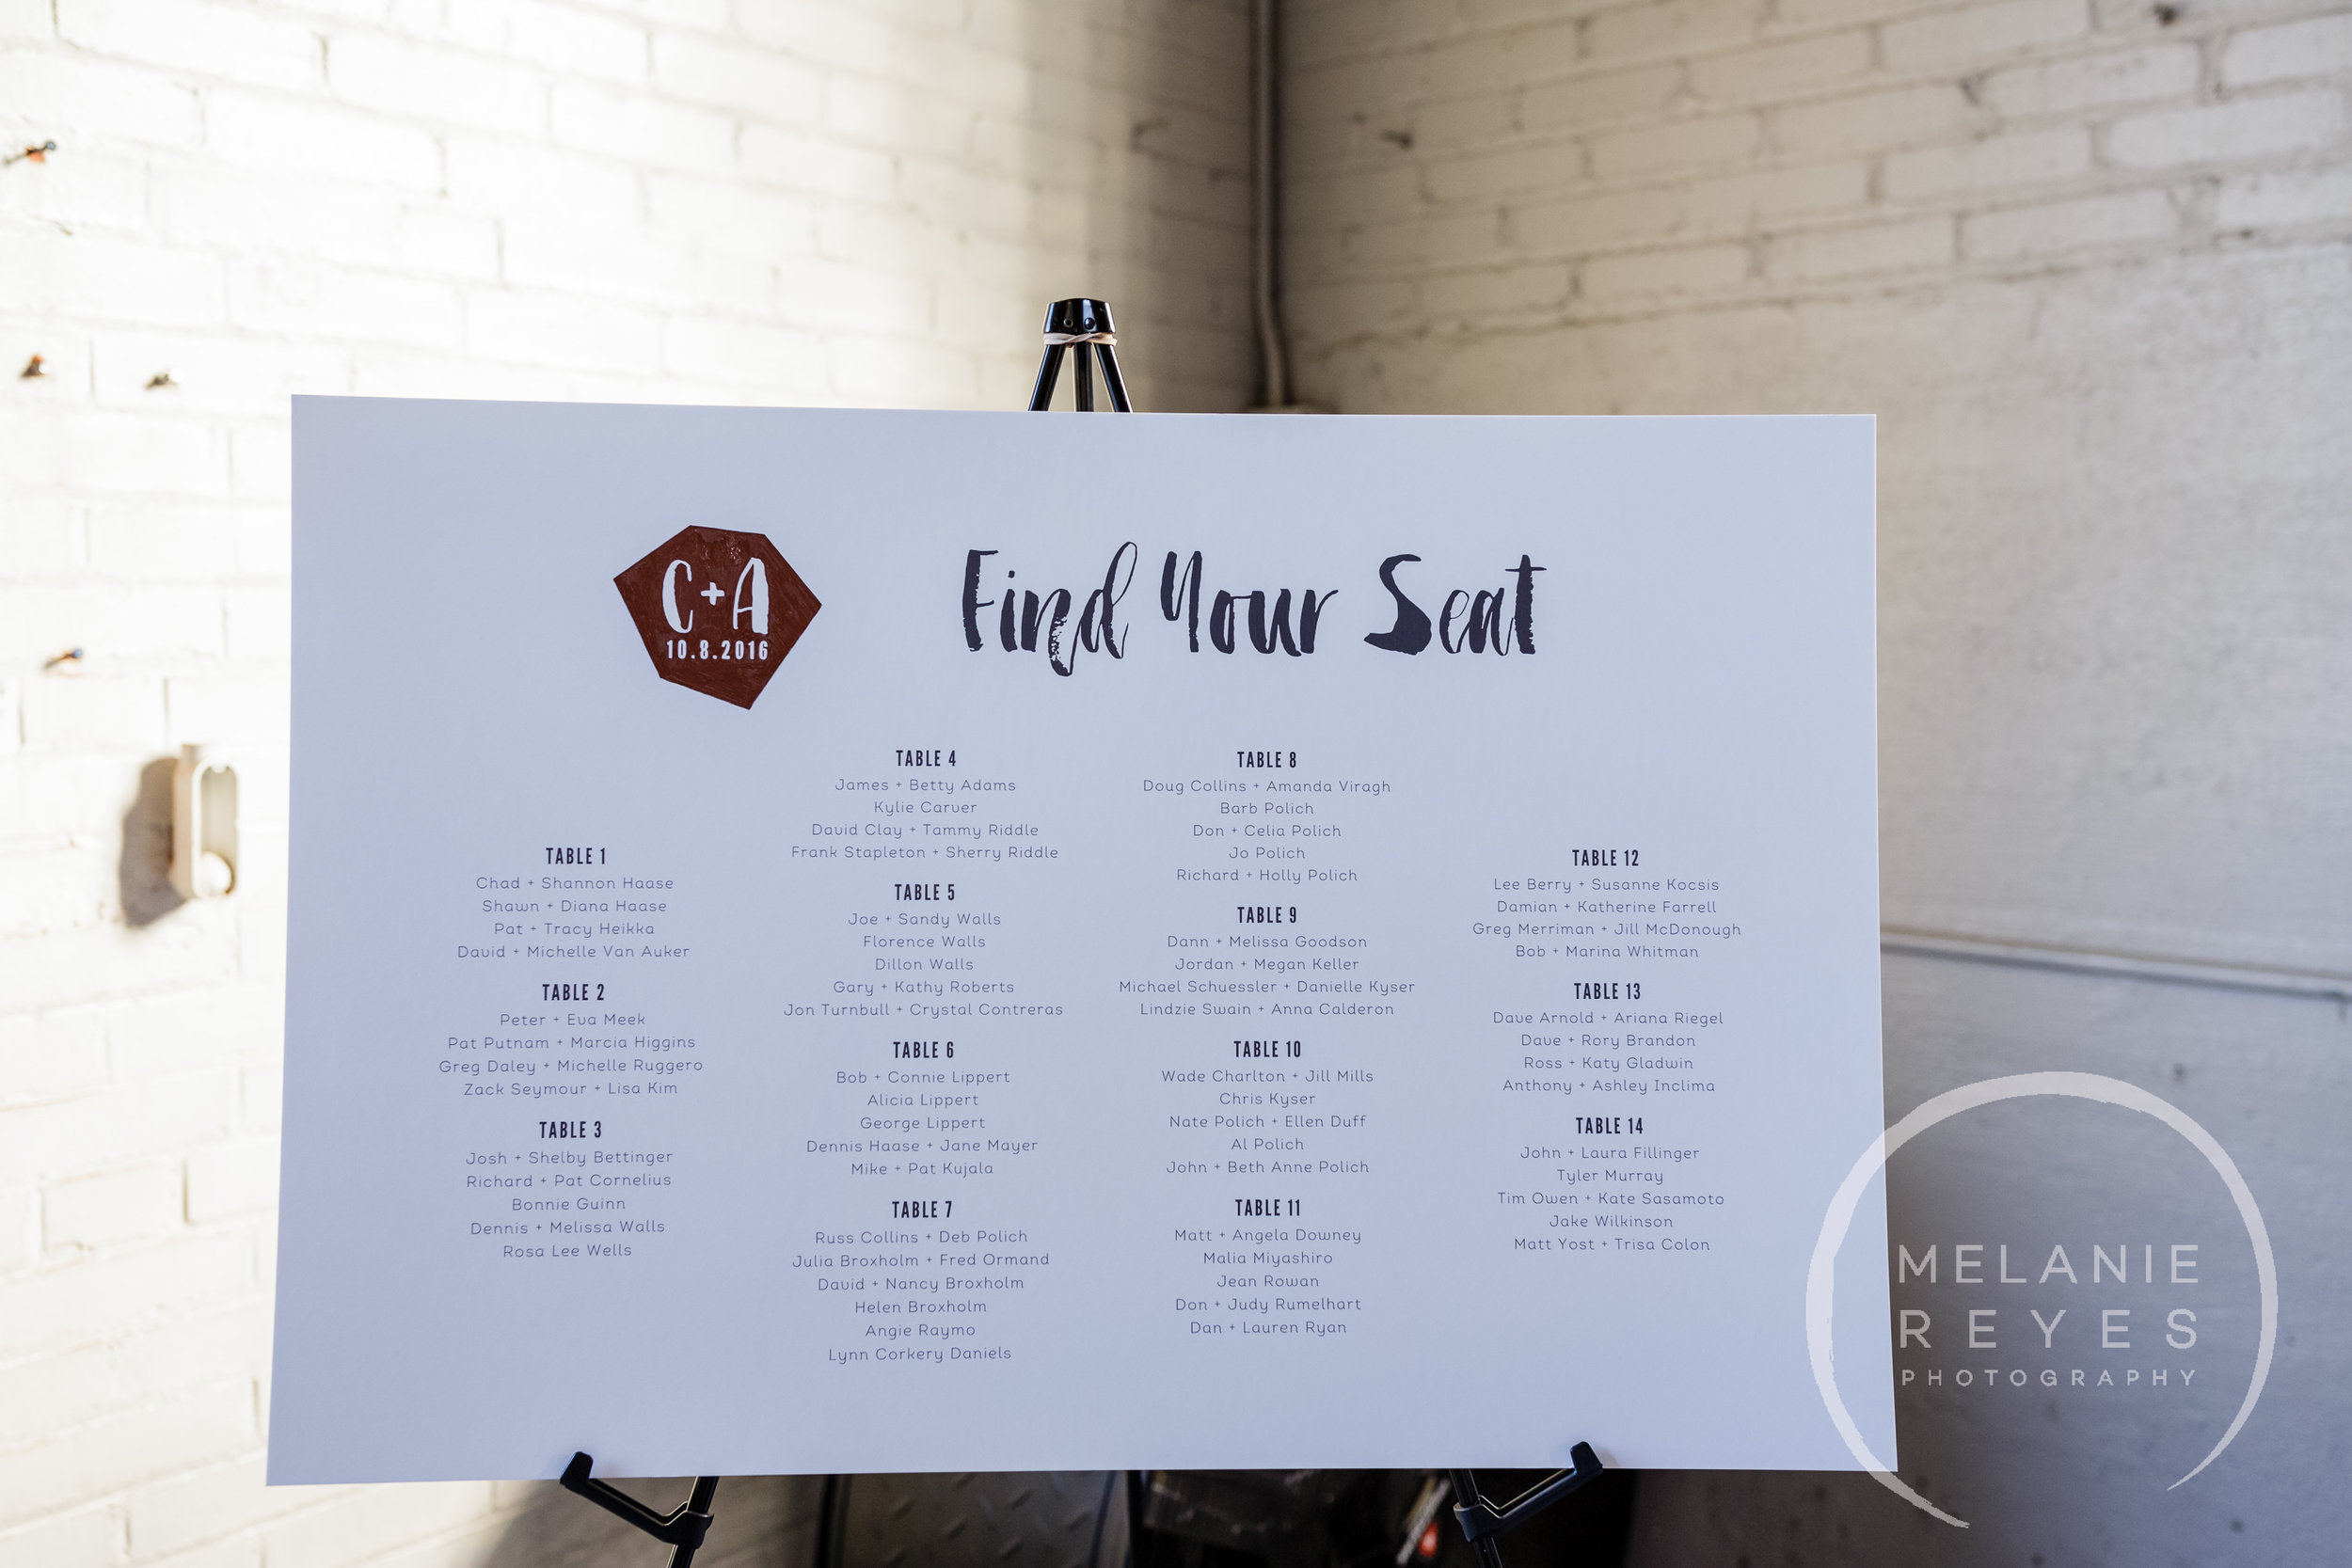 C+A
10.8.2016
Find Your Seat
TABLE 1
Chad + Shannon Haase
Shawn + Diana Haase
Pat + Tracy Heikka
David + Michelle Van Auker
TABLE 2
Peter + Eva Meek
Pat Putnam + Marcia Higgins
Greg Daley + Michelle Ruggero
Zack Seymour + Lisa Kim
TABLE 3
Josh + Shelby Bettinger
Richard + Pat Cornelius
Bonnie Guinn
Dennis + Melissa Walls
Rosa Lee Wells
TABLE 4
James + Betty Adams
Kylie Carver
David Clay + Tammy Riddle
Frank Stapleton + Sherry Riddle
TABLE 5
Joe + Sandy Walls
Florence Walls
Dillon Walls
Gary + Kathy Roberts
Jon Turnbull + Crystal Contreras
TABLE 6
Bob + Connie Lippert
Alicia Lippert
George Lippert
Dennis Haase + Jane Mayer
Mike + Pat Kujala
TABLE 7
Russ Collins + Deb Polich
Julia Broxholm + Fred Ormand
David + Nancy Broxholm
Helen Broxholm
Angie Raymo
Lynn Corkery Daniels
TABLE 8
Doug Collins + Amanda Viragh
Barb Polich
Don + Celia Polich
Jo Polich
Richard + Holly Polich
TABLE 9
Dann + Melissa Goodson
Jordan + Megan Keller
Michael Schuessler + Danielle Kyser
Lindzie Swain + Anna Calderon
TABLE 10
Wade Charlton + Jill Mills
Chris Kyser
Nate Polich + Ellen Duff
Al Polich
John + Beth Anne Polich
TABLE 11
Matt + Angela Downey
Malia Miyashiro
Jean Rowan
Don + Judy Rumelhart
Dan + Lauren Ryan
TABLE 12
Lee Berry + Susanne Kocsis
Damian + Katherine Farrell
Greg Merriman + Jill McDonough
Bob + Marina Whitman
TABLE 13
Dave Arnold + Ariana Riegel
Dave + Rory Brandon
Ross + Katy Gladwin
Anthony + Ashley Inclima
TABLE 14
John + Laura Fillinger
Tyler Murray
Tim Owen + Kate Sasamoto
Jake Wilkinson
Matt Yost + Trisa Colon
MELANIE
REYES
PHOTOGRAPHY